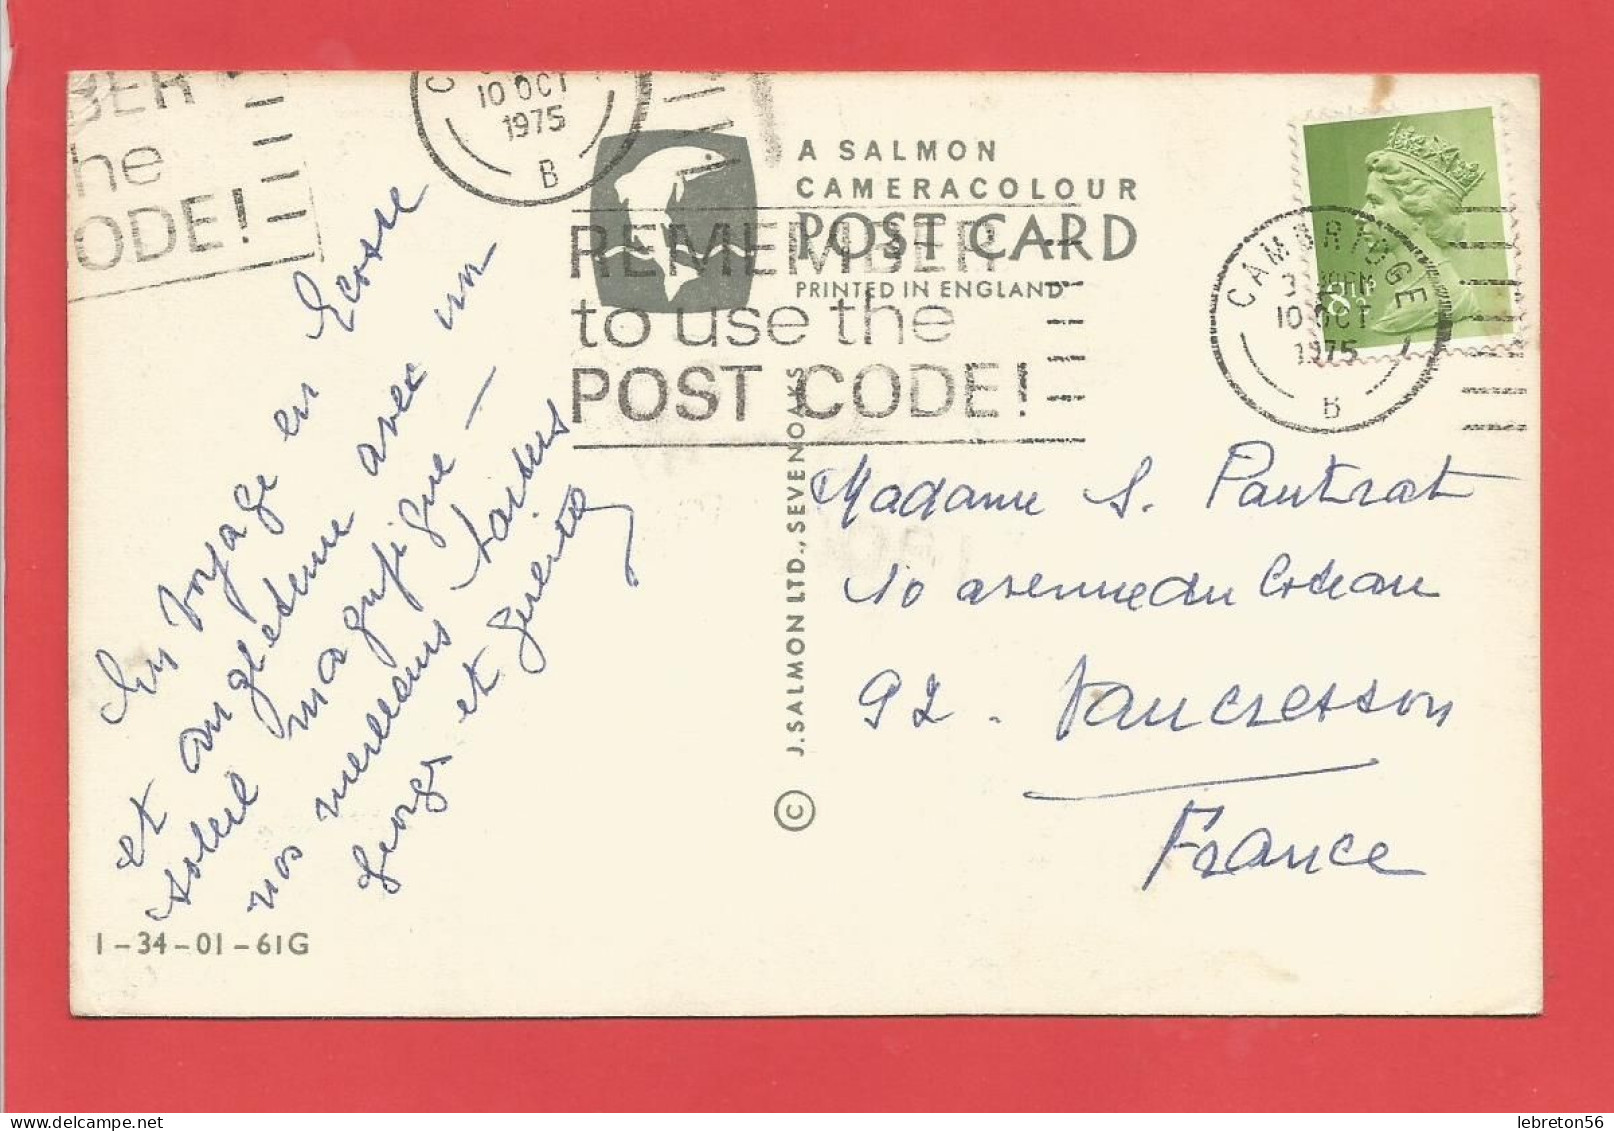 BER
he
ODE!
10 OCT
1975
B
A SALMON
CAMERACOLOUR
POST CARD
PRINTED IN ENGLAND
REMEMBER
to use the
POST CODE!
CAMBRIDGE
10 OCT
1975
B
8P
En voyage en Ecosse
et angleterre avec un
soleil magnifique —
nos meilleurs
et
J. SALMON LTD., SEVENOAKS ©
Madame S. Pautrat
10 avenue du Coteau
92. Vaucresson
France
1-34-01-61G
lebreton56